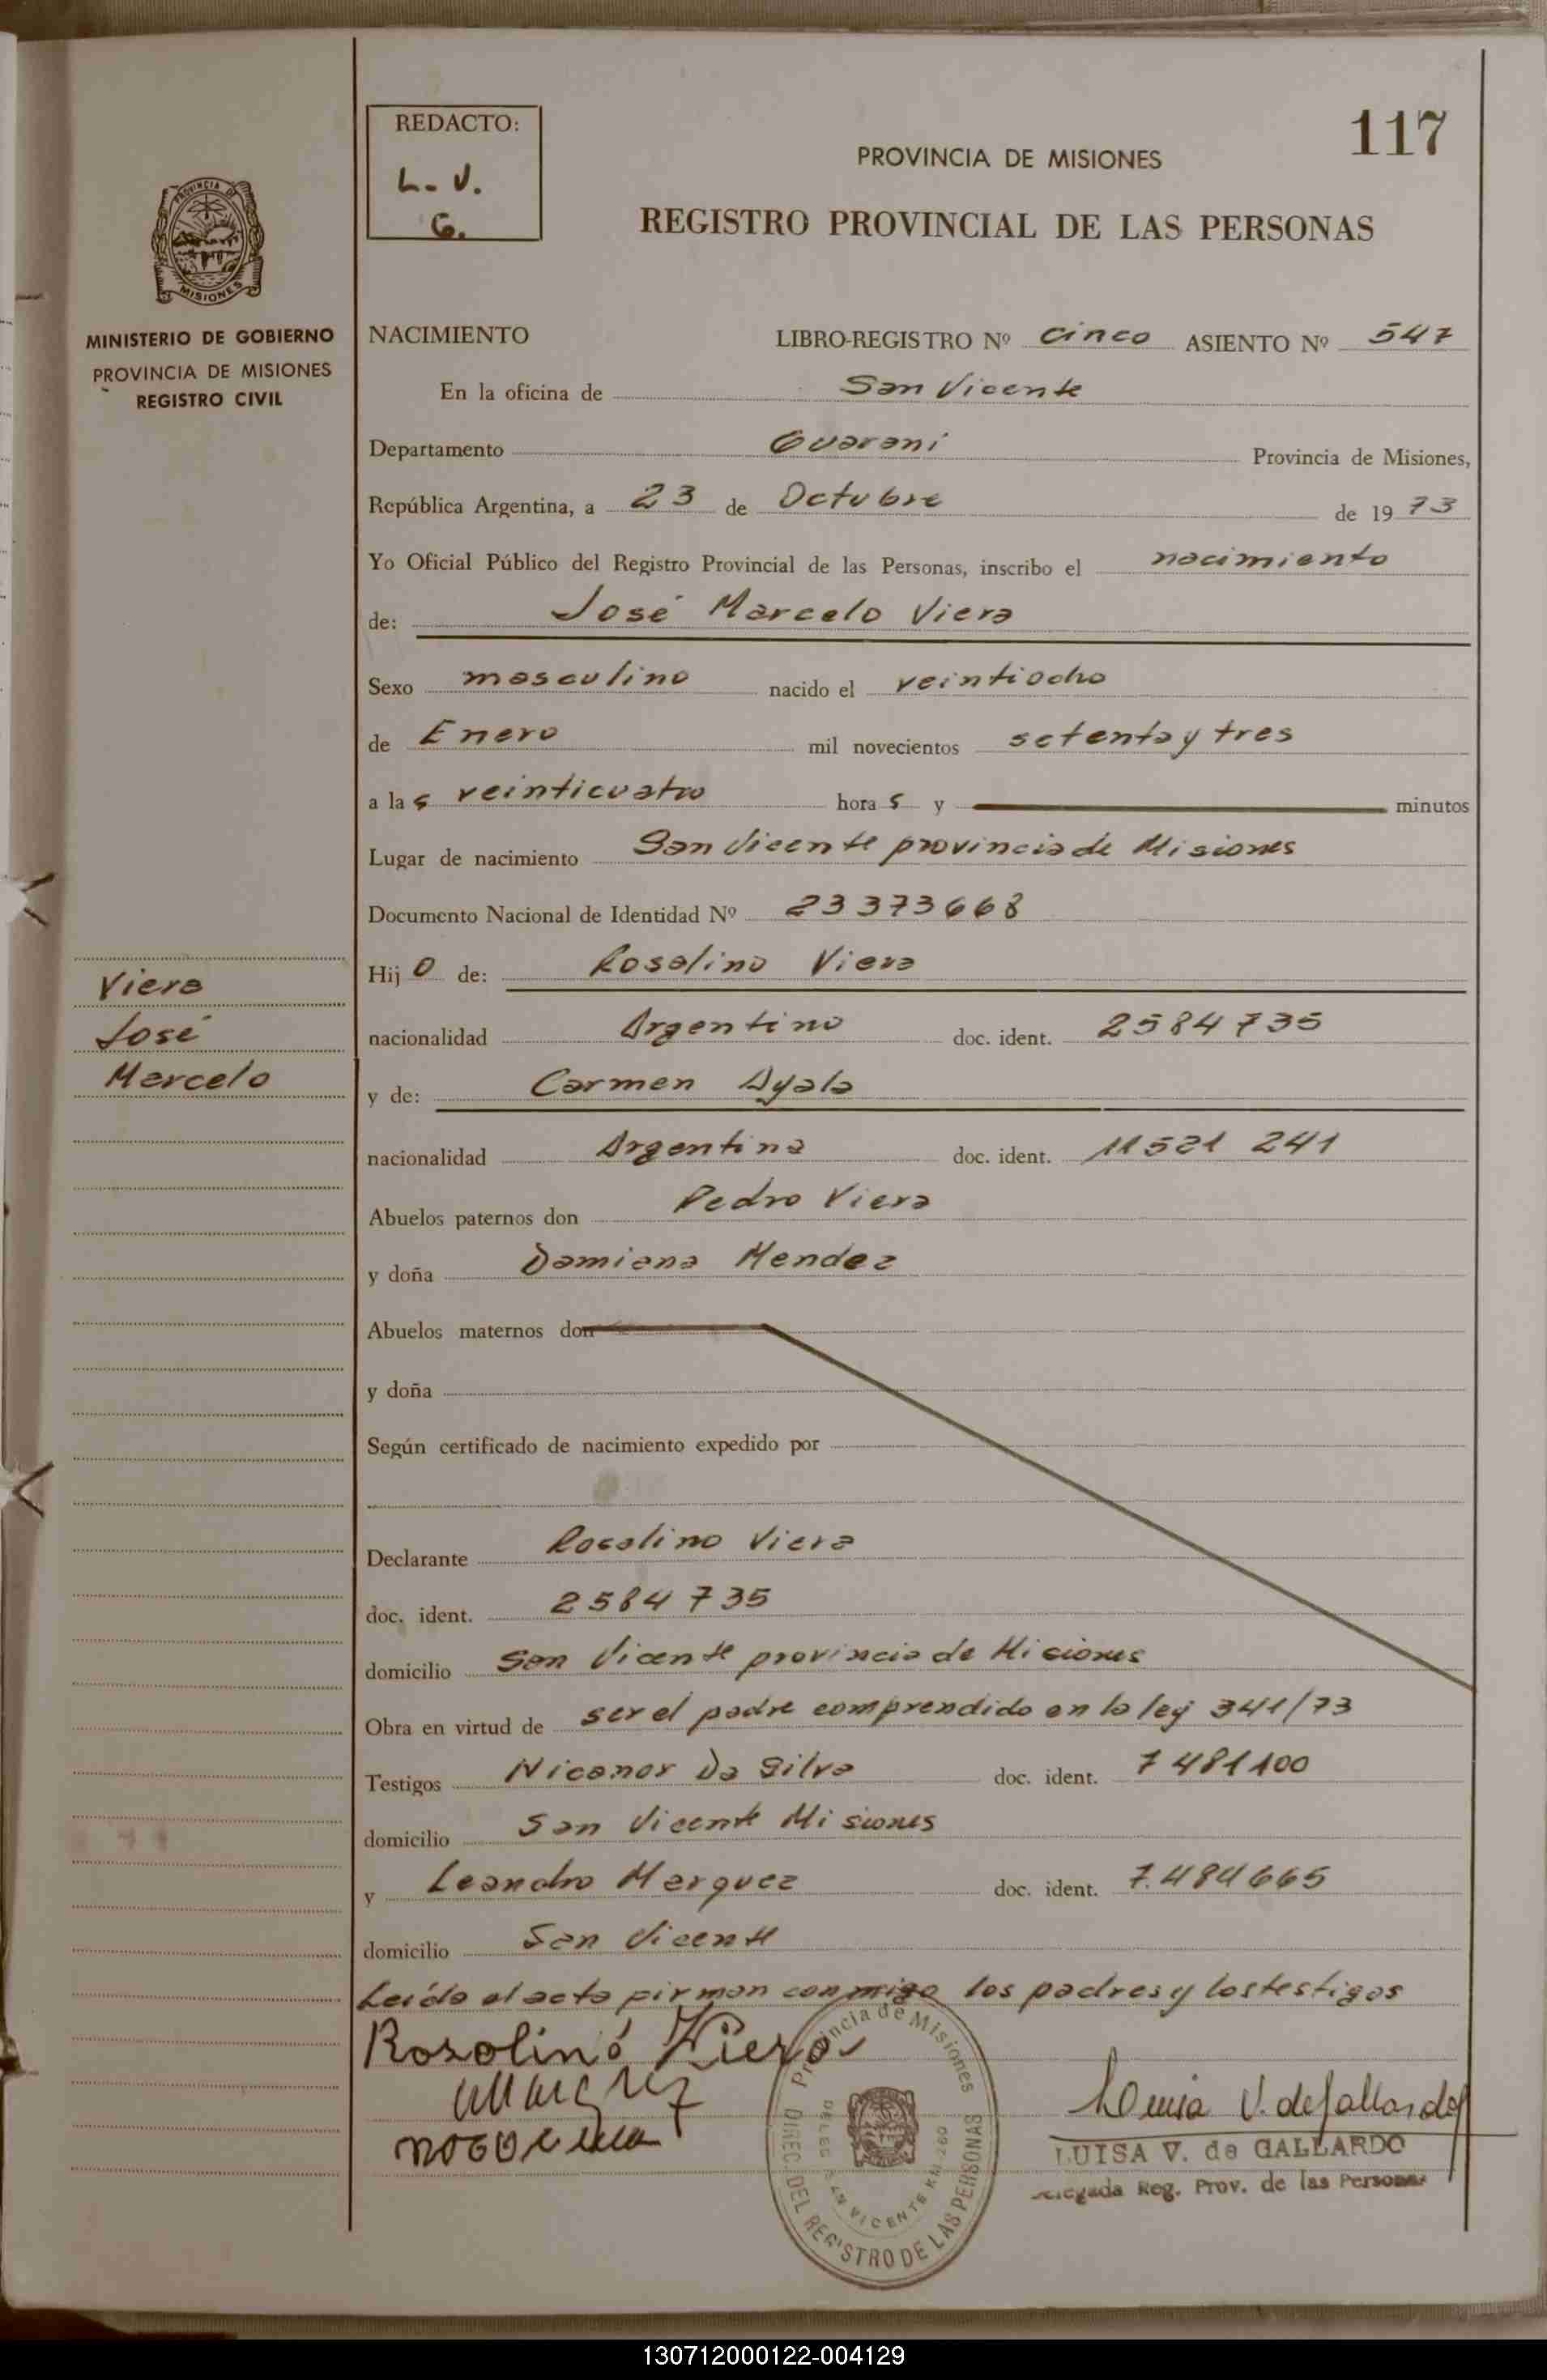 REDACTO:
L. V.
G.
117
PROVINCIA DE MISIONES
REGISTRO PROVINCIAL DE LAS PERSONAS
PROVINCIA DE
MISIONES
MINISTERIO DE GOBIERNO
PROVINCIA DE MISIONES
REGISTRO CIVIL
NACIMIENTO LIBRO-REGISTRO Nº cinco ASIENTO Nº 547
En la oficina de San Vicente
Departamento Guarani Provincia de Misiones,
República Argentina, a 23 de Octubre de 1973
Yo Oficial Público del Registro Provincial de las Personas, inscribo el nacimiento
de: José Marcelo Viera
Sexo masculino nacido el veintiocho
de Enero mil novecientos setenta y tres
a las veinticuatro horas y minutos
Lugar de nacimiento San Vicente provincia de Misiones
Documento Nacional de Identidad Nº 23373668
Hijo de: Rosalino Viera
nacionalidad Argentino doc. ident. 2584735
y de: Carmen Ayala
nacionalidad Argentina doc. ident. 11521 241
Abuelos paternos don Pedro Viera
y doña Damiana Mendez
Abuelos maternos don
y doña
Según certificado de nacimiento expedido por
Declarante Rosalino Viera
doc. ident. 2584735
domicilio San Vicente provincia de Misiones
Obra en virtud de ser el padre comprendido en la ley 341/73
Testigos Nicanor Da Silva doc. ident. 7481100
domicilio San Vicente Misiones
y Leandro Marquez doc. ident. 7.484665
domicilio San Vicente
Leída el acta firman conmigo los padres y los testigos
Viera
José
Marcelo
Rosolino Viera
Provincia de Misiones
DIREC. DEL REGISTRO DE LAS PERSONAS
SAN VICENTE KM. 260
Luisa V. de Gallardo
LUISA V. de GALLARDO
Delegada Reg. Prov. de las Personas
130712000122-004129